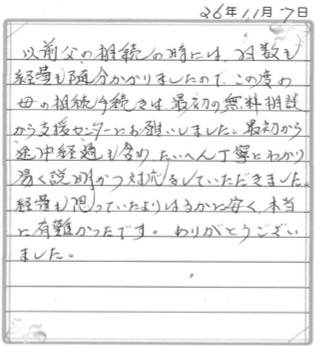 26年11月7日
以前父の相続の時には、日数も
経費も随分かかりましたので、この度の
母の相続手続きは最初の無料相談
から支援センターにお願いしました。最初から
途中経過も含め、たいへん丁寧にわかり
易く説明かつ対応をしていただきました。
経費も思っていたよりはるかに安く、本当
に有難かったです。ありがとうござい
ました。